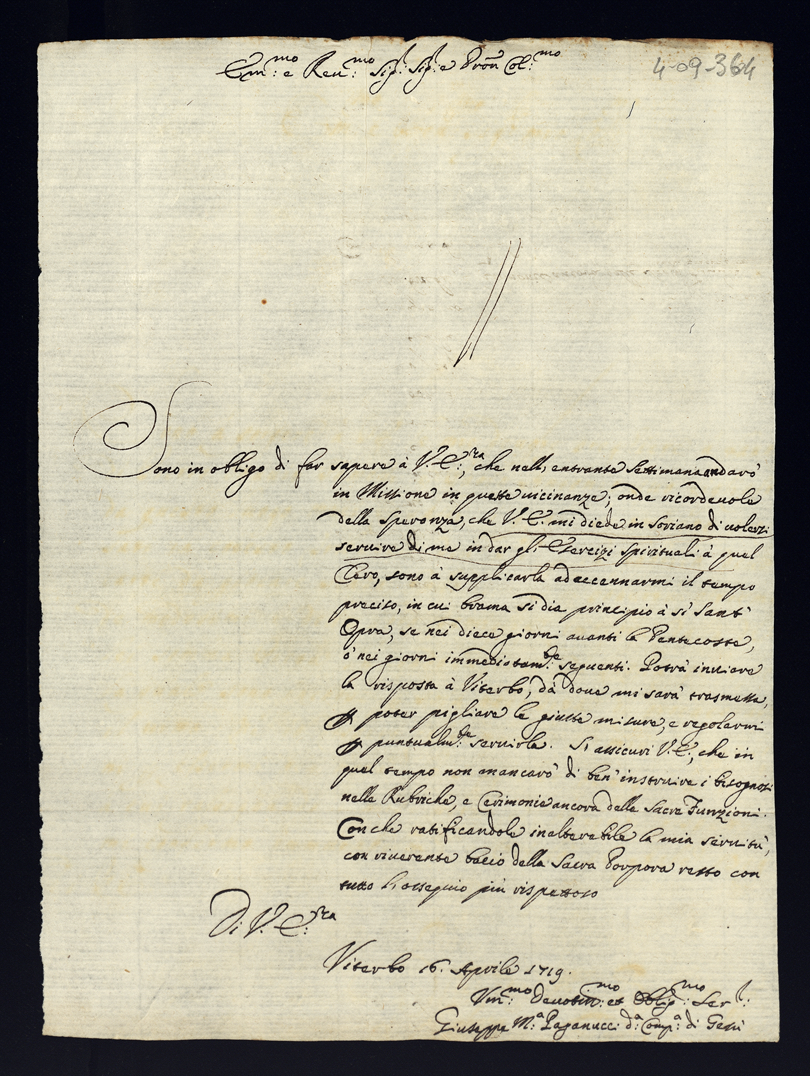 Em:mo e Rev:mo Sig:r Sig:r e Pron Col:mo
4-09-364
Sono in obligo di far sapere à V. E:za, che nell'entrante Settimana andarò
in Missione in queste uicinanze; onde ricordeuole
della speranza, che V. E. mi diede in Soriano di uolerzi
seruire di me in dar gli Esercizi Spirituali à quel
Clero, sono à supplicarla ad accennarmi il tempo
preciso, in cui brama si dia principio à sì Sant'
Opra, se nei diece giorni auanti la Pentecoste,
ò nei giorni immediatam:te seguenti. Potrà inuiare
la risposta à Viterbo, dà doue mi sarà trasmessa,
ꝑ poter pigliare le giuste misure, e regolarmi
ꝑ puntualm:te seruirla. Si assicuri V. E., che in
quel tempo non mancarò di ben' instruire i bisognosi
nelle Rubriche, e Cerimonie ancora delle Sacre Funzioni.
Con che ratificandole inalterabile la mia seruitù,
con riuerente bacio della Sacra Porpora resto con
tutto l'ossequio più rispettoso
Di V. E:za
Viterbo 16. Aprile 1719.
Um:mo Deuotis:mo et Oblig:mo Ser:r
Giuseppe M:a Paganucci d:a Comp:a di Gesù